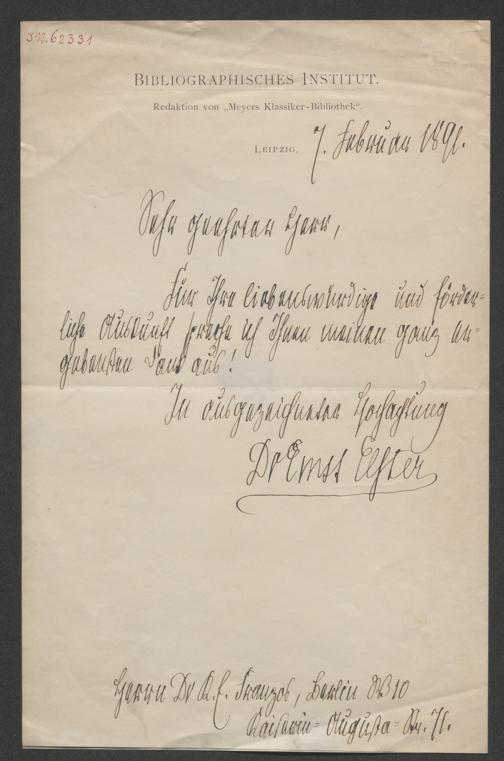 I.N. 62331
BIBLIOGRAPHISCHES INSTITUT.
Redaktion von „Meyers Klassiker-Bibliothek“.
LEIPZIG, 7. Februar 1891.
Sehr geehrter Herr,
Für Ihre liebenswürdige und förder=
liche Auskunft spreche ich Ihnen meinen ganz er=
gebensten Dank aus!
In ausgezeichneter Hochachtung
Dr Ernst Elster
Herrn Dr K. E. Franzos, Berlin W 10
Kaiserin=Augusta=Str. 71.